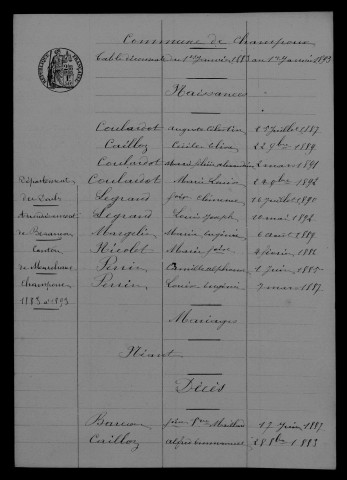 Commune de Champoux
Table décennale du 1er Janvier 1883 au 1er Janvier 1893
Naissances
Coulardot Auguste Célestin 19 juillet 1887
Cailloz 22 9bre 1889
Coulardot 2 mars 1891
Coulardot Marie Louise 1892
Legrand Clémence 16 juillet 1890
Legrand Louis Joseph 10 mai 1892
Mongelin Maria Eugénie 6 août 1889
Nicolet Marie 4 février 1886
Perrin Camille Alphonse 1 juin 1885
Perrin Louis Eugène 7 mars 1887
Département
du Doubs
Arrondissement
de Besançon
Canton
de Marchaux
Champoux
1883 à 1893
Mariages
Néant
Décès
12 juin 1887
Cailloz 28 8bre 1883